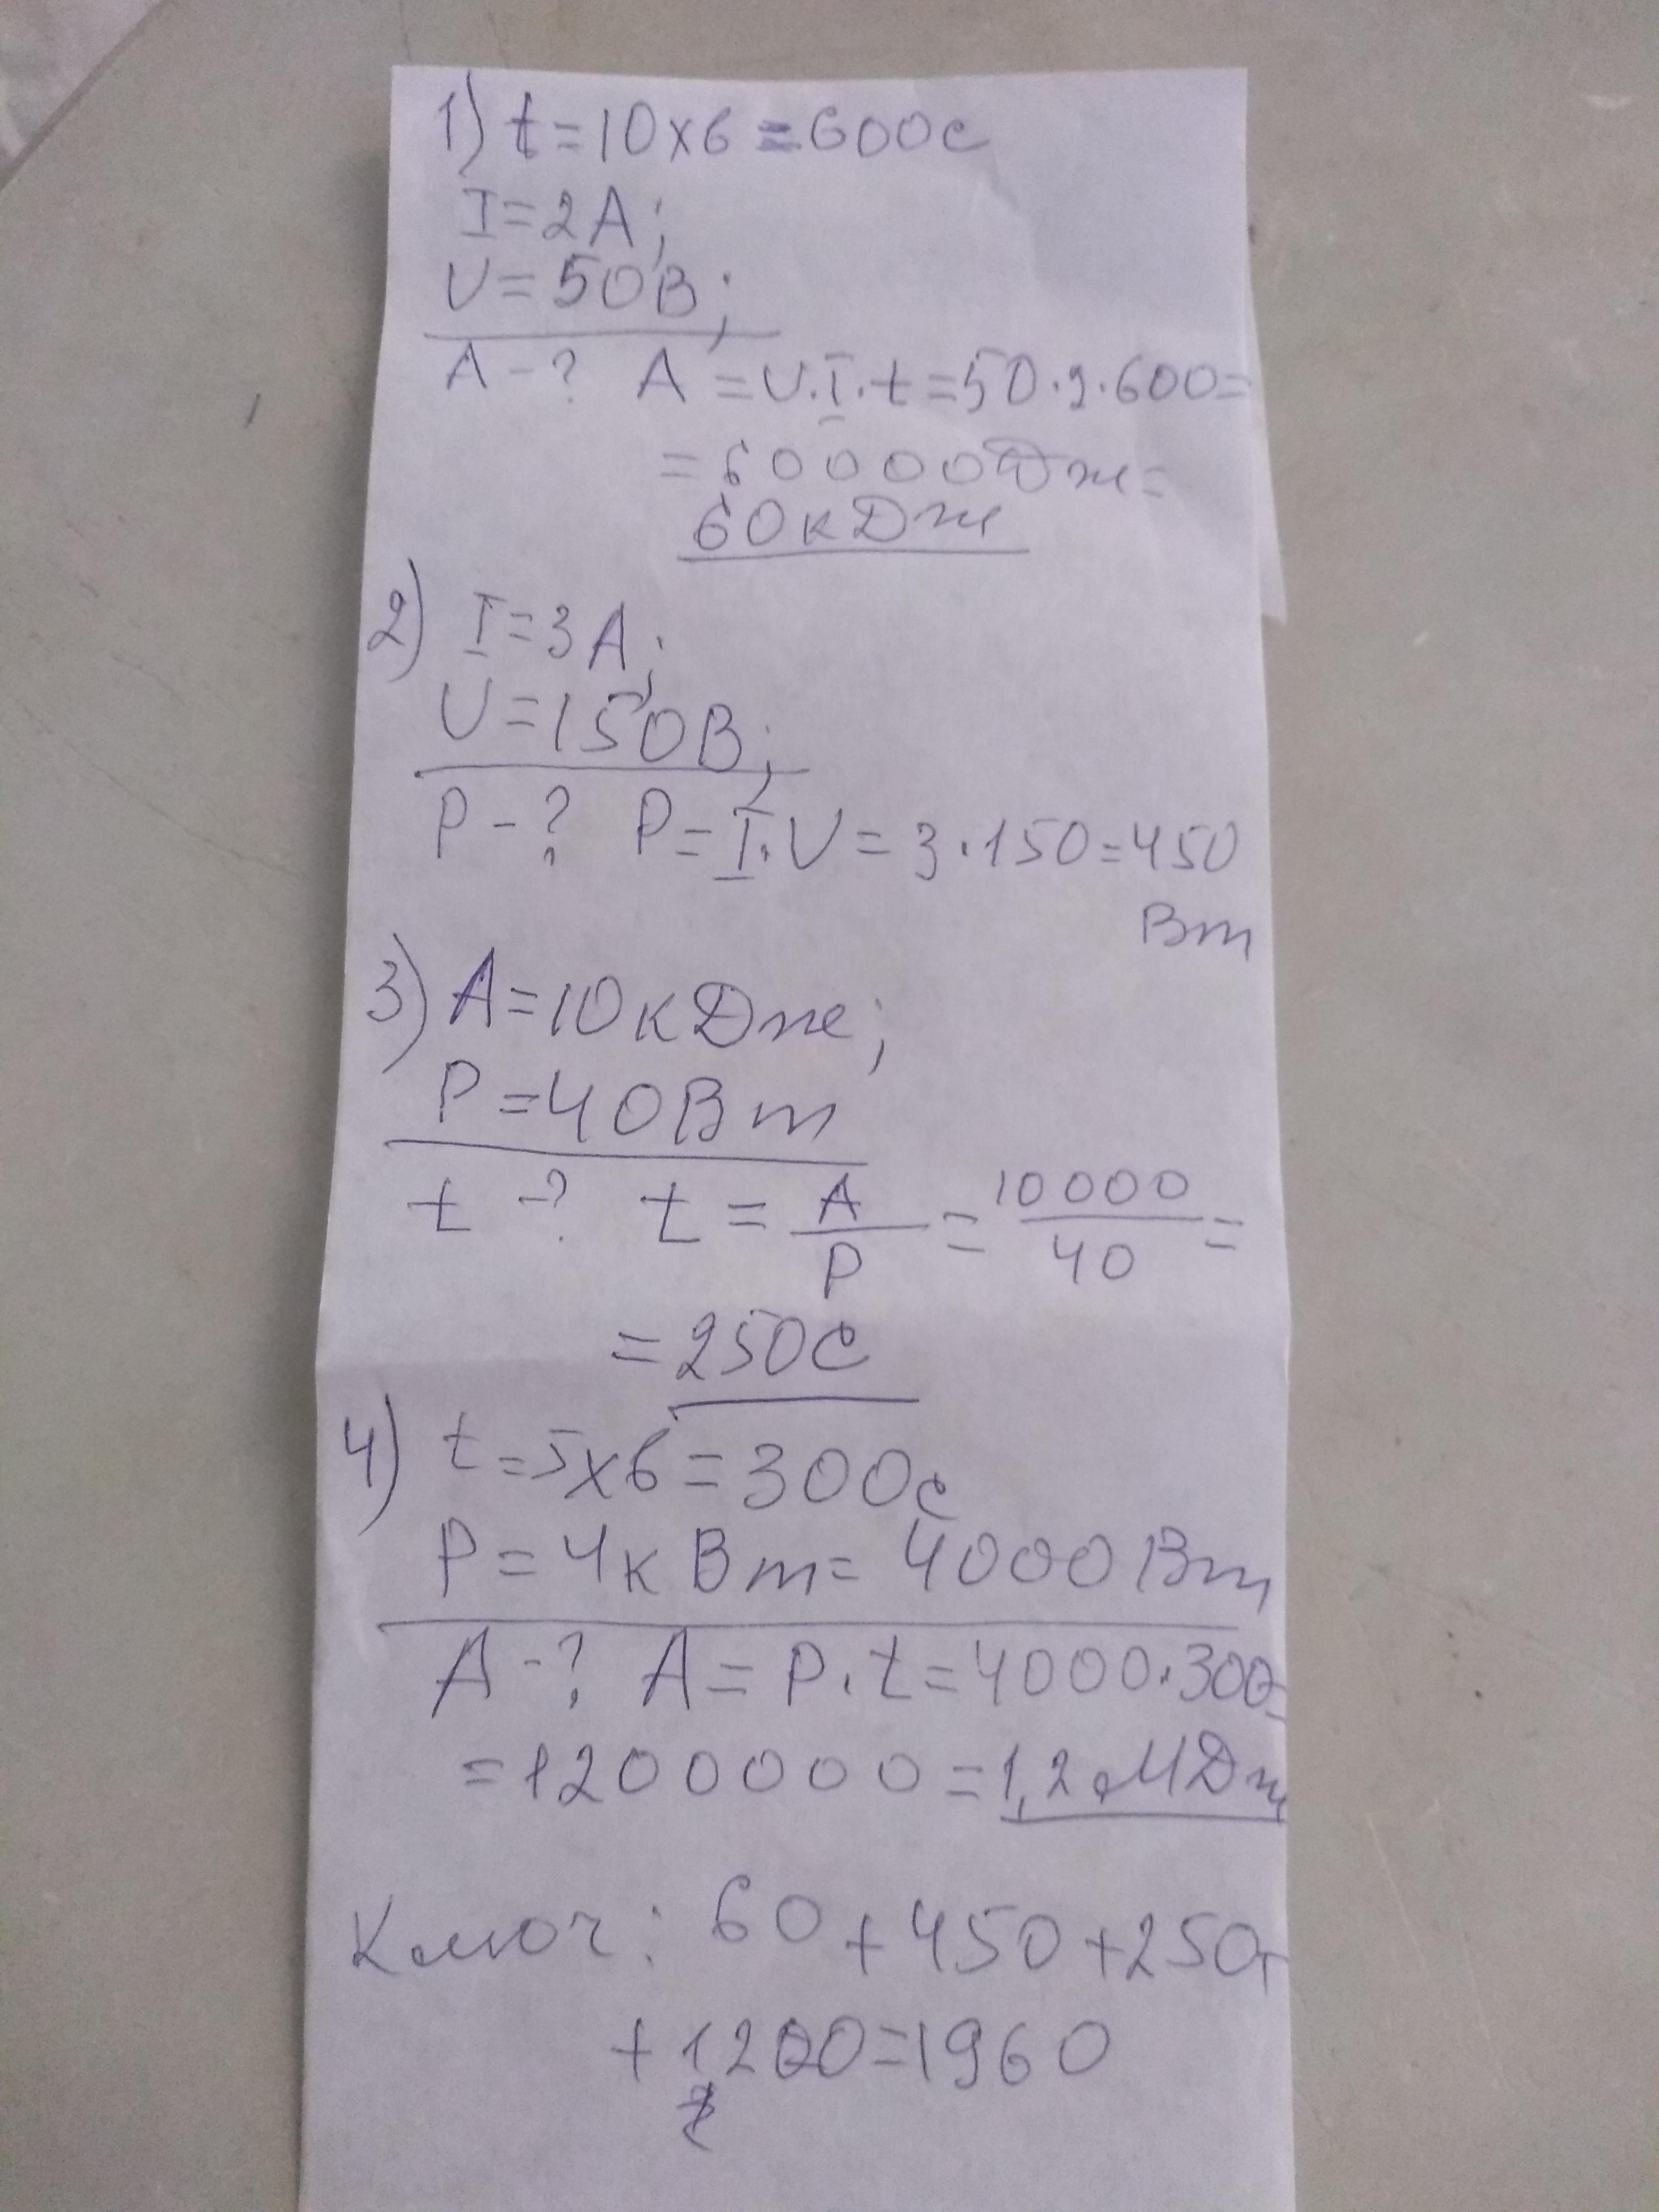 1) t=10x6=600c
I=2A;
U=50B;
A-? A=U·I·t=50·2·600=
=60000Дж=
60кДж
2) I=3A;
U=150B;
P-? P=I·U=3·150=450
Вт
3) A=10кДж;
P=40Вт
t-? t=A/P=10000/40=
=250с
4) t=5x6=300с
P=4кВт=4000Вт
A-? A=P·t=4000·300=
=1200000=1,2МДж
Ключ: 60+450+250+
+1200=1960